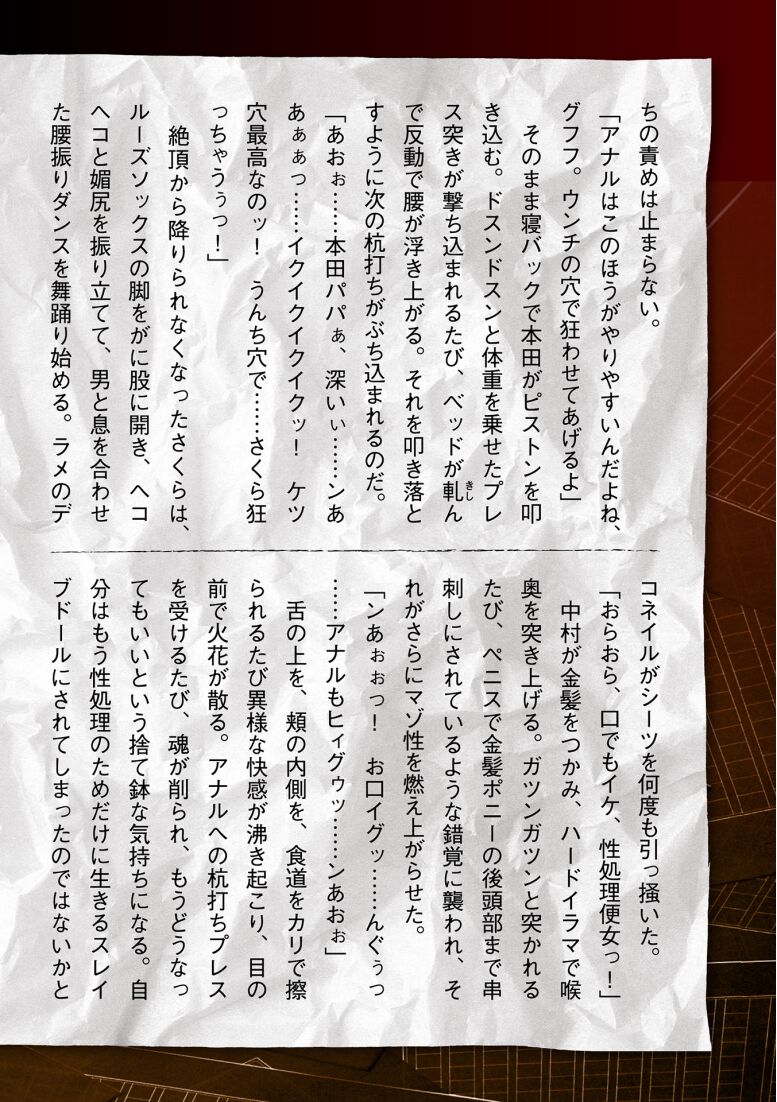 ちの責めは止まらない。
「アナルはこのほうがやりやすいんだよね、
グフフ。ウンチの穴で狂わせてあげるよ」
そのまま寝バックで本田がピストンを叩
き込む。ドスンドスンと体重を乗せたプレ
ス突きが撃ち込まれるたび、ベッドが軋ん
で反動で腰が浮き上がる。それを叩き落と
すように次の杭打ちがぶち込まれるのだ。
「あおぉ……本田パパぁ、深いぃ……ンあ
あぁぁっ……イクイクイクイクッ！　ケツ
穴最高なのッ！　うんち穴で……さくら狂
っちゃうぅっ！」
絶頂から降りられなくなったさくらは、
ルーズソックスの脚をがに股に開き、ヘコ
ヘコと媚尻を振り立てて、男と息を合わせ
た腰振りダンスを舞踊り始める。ラメのデ
コネイルがシーツを何度も引っ掻いた。
「おらおら、口でもイケ、性処理便女っ！」
中村が金髪をつかみ、ハードイラマで喉
奥を突き上げる。ガツンガツンと突かれる
たび、ペニスで金髪ポニーの後頭部まで串
刺しにされているような錯覚に襲われ、そ
れがさらにマゾ性を燃え上がらせた。
「ンあぉぉっ！　お口イグッ……んぐぅっ
……アナルもヒィグゥッ……ンあおぉ」
舌の上を、頬の内側を、食道をカリで擦
られるたび異様な快感が沸き起こり、目の
前で火花が散る。アナルへの杭打ちプレス
を受けるたび、魂が削られ、もうどうなっ
てもいいという捨て鉢な気持ちになる。自
分はもう性処理のためだけに生きるスレイ
ブドールにされてしまったのではないかと